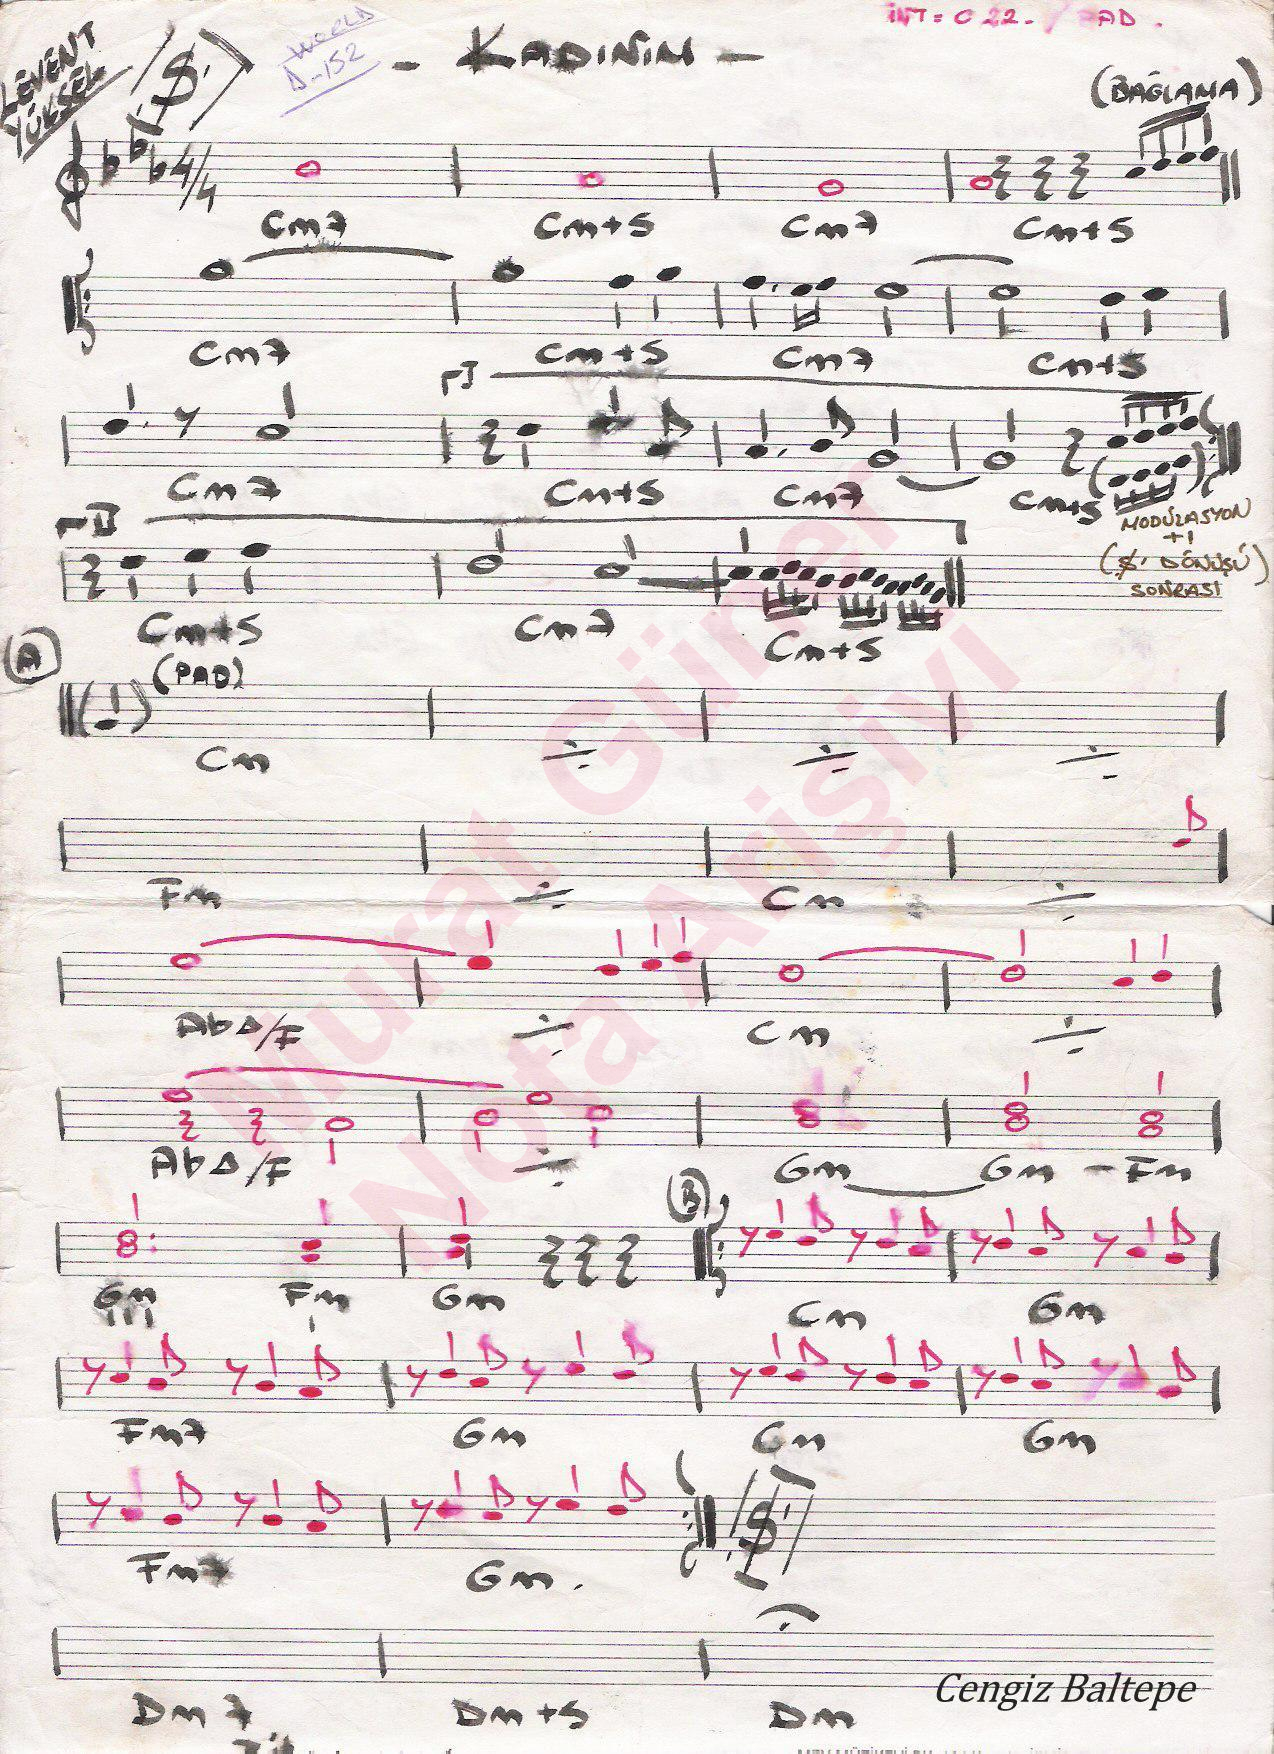 INT = C 22. / PAD.
WORLD
A-152
LEVENT
YÜKSEL
- KADINIM -
(BAĞLAMA)
4/4
Cm7 Cm+5 Cm7 Cm+5
Cm7 Cm+5 Cm7 Cm+5
I
Cm7 Cm+5 Cm7 Cm+5
MODÜLASYON
+1
(𝄋 DÖNÜŞÜ)
SONRASI
II
Cm+5 Cm7 Cm+5
A
(PAD)
Cm
Fm Cm
Ab△/F Cm
Ab△/F Gm Gm - Fm
B
Gm Fm Gm Cm Gm
Fm7 Gm Cm Gm
Fm7 Gm.
Dm7 Dm+5 Dm
Murat Güner
Nota Arişivi
Cengiz Baltepe